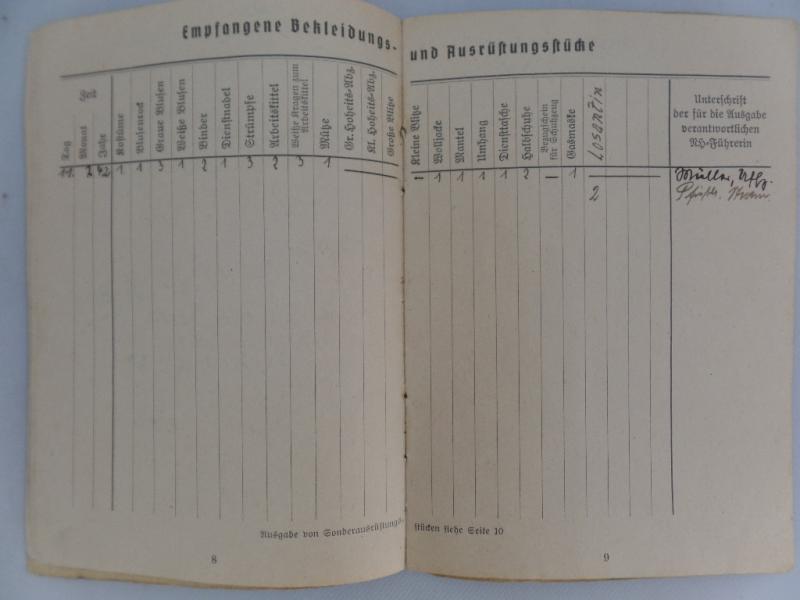 Empfangene Bekleidungs- und Ausrüstungsstücke
Tag
Monat
Jahr
Kostüme
Blusenrock
Graue Blusen
Weiße Blusen
Binder
Dienstnadel
Strümpfe
Arbeitskittel
Weiße Kragen zum Arbeitskittel
Mütze
Gr. Hoheits-Abz.
Kl. Hoheits-Abz.
Große Blitze
Kleine Blitze
Wolljacke
Mantel
Umhang
Diensttasche
Halbschuhe
Bezugschein für Schuhzeug
Gasmaske
Losantin
Unterschrift
der für die Ausgabe
verantwortlichen
NH-Führerin
11. 2 42 1 1 3 1 2 1 3 2 3 1 — — 1 1 1 1 2 — 1 — Müller, Uffz.
2
Ausgabe von Sonderausrüstungs- stücken siehe Seite 10
8
9